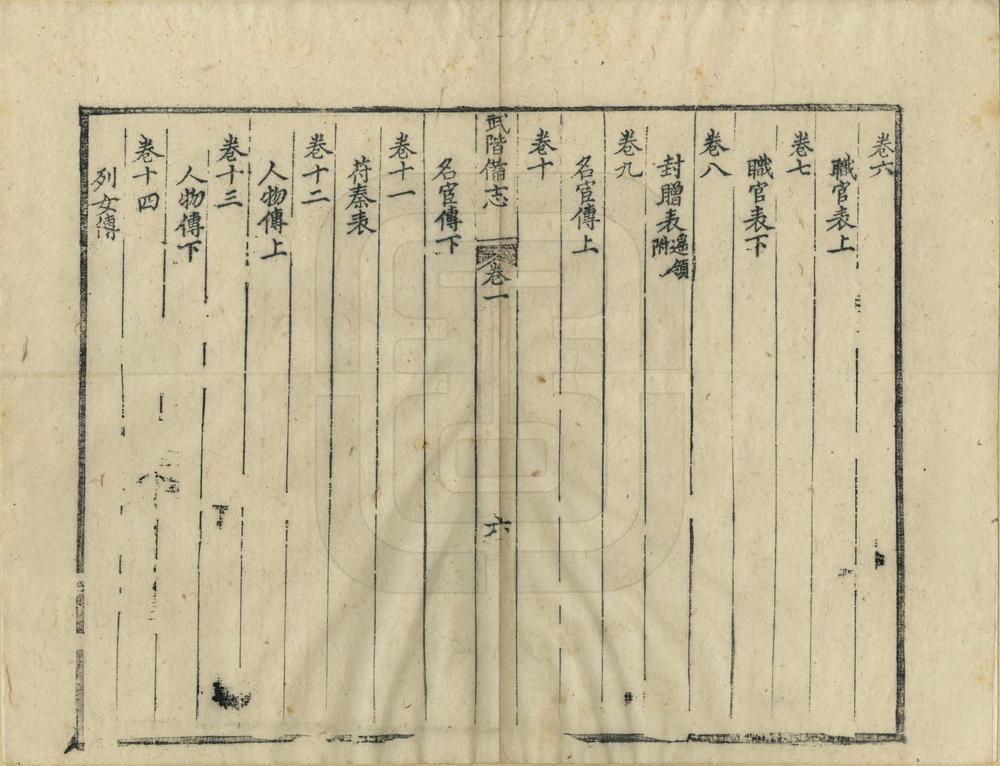 卷六
職官表上
卷七
職官表下
卷八
封贈表遥領附
卷九
名宦傳上
卷十
武階備志
卷一
六
名宦傳下
卷十一
符秦表
卷十二
人物傳上
卷十三
人物傳下
卷十四
列女傳